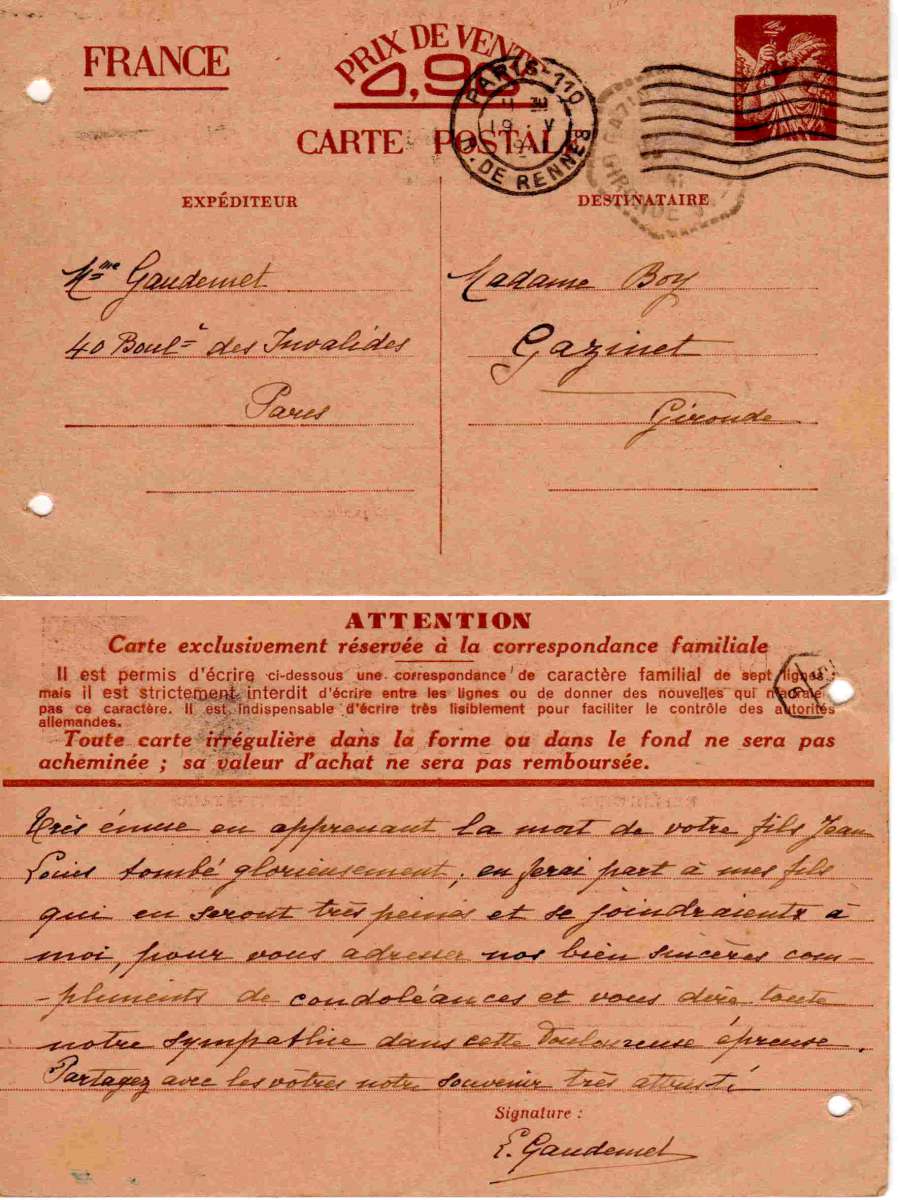 FRANCE
PRIX DE VENTE
0,90
CARTE POSTALE
PARIS-110
19 V
R. DE RENNES
GIRONDE
41
EXPÉDITEUR
DESTINATAIRE
Mme Gaudemet
40 Boul= des Invalides
Paris
Madame Boy
Gazinet
Gironde
ATTENTION
Carte exclusivement réservée à la correspondance familiale
Il est permis d'écrire ci-dessous une correspondance de caractère familial de sept lignes
mais il est strictement interdit d'écrire entre les lignes ou de donner des nouvelles qui
pas ce caractère. Il est indispensable d'écrire très lisiblement pour faciliter le contrôle des autorités
allemandes.
Toute carte irrégulière dans la forme ou dans le fond ne sera pas
acheminée ; sa valeur d'achat ne sera pas remboursée.
Très émue en apprenant la mort de votre fils Jean
Louis tombé glorieusement; en ferai part à mes fils
qui en seront très peinés et se joindraient à
moi, pour vous adresser nos bien sincères com-
-pliments de condoléances et vous dire toute
notre sympathie dans cette douloureuse épreuve.
Partagez avec les vôtres notre souvenir très attristé
Signature :
E. Gaudemet